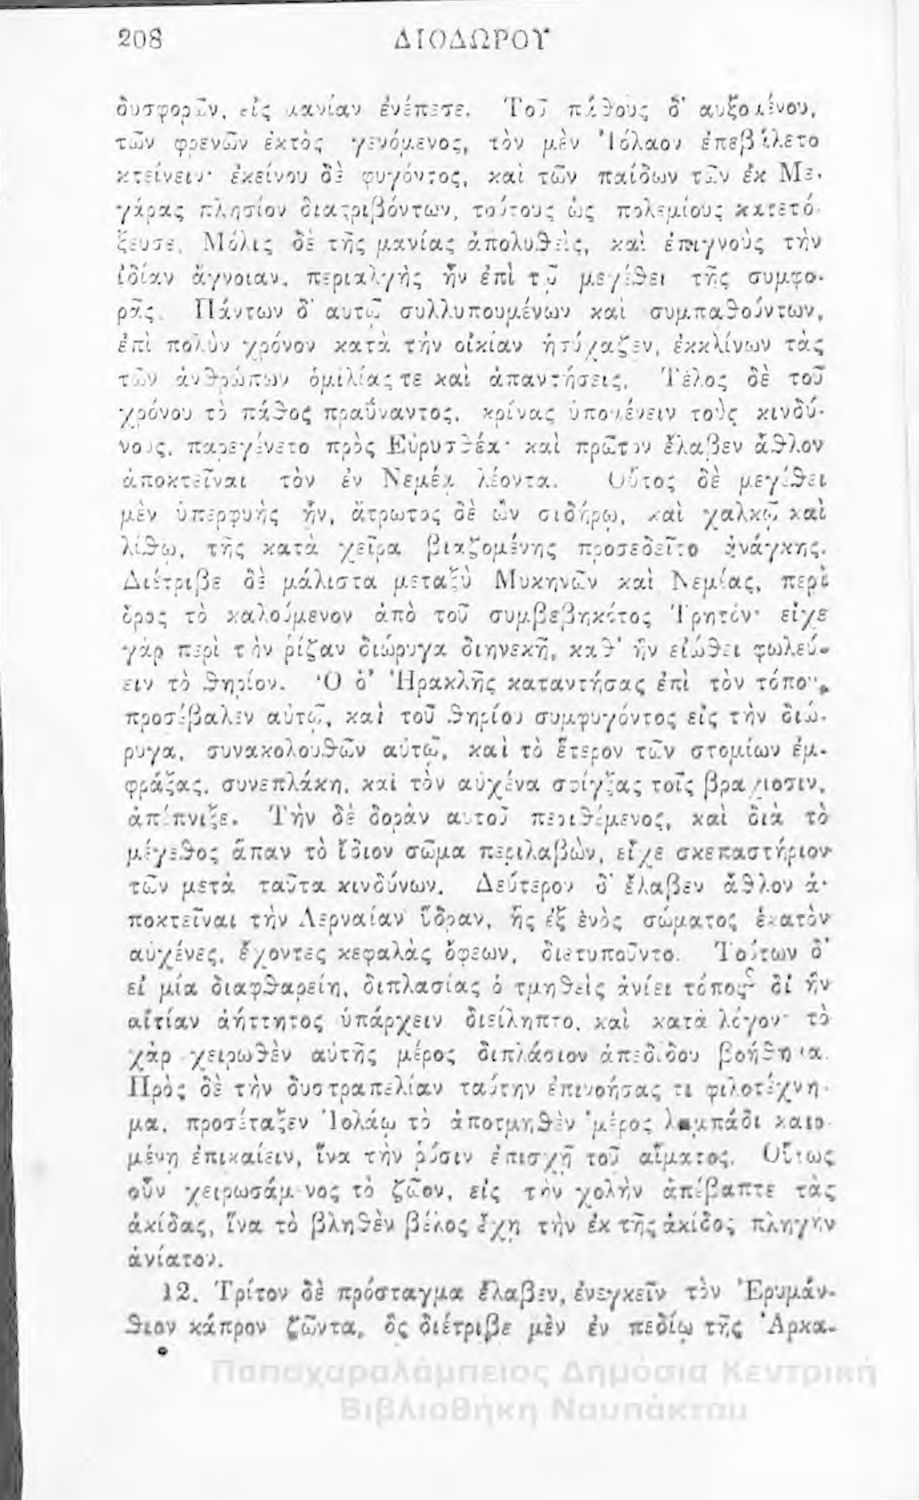 208 ΔΙΟΔΩΡΟΥ
δυσφορῶν, εἰς μανίαν ἐνέπεσε. Τοῦ πάθους δ' αυξομένου,
τῶν φρενῶν ἐκτὸς γενόμενος, τὸν μὲν Ἰόλαον ἐπεβάλετο
κτείνειν· ἐκείνου δὲ φυγόντος, καὶ τῶν παίδων τῶν ἐκ Με-
γάρας πλησίον διατριβόντων, τούτους ὡς πολεμίους κατετό-
ξευσε. Μόλις δὲ τῆς μανίας ἀπολυθεὶς, καὶ ἐπιγνοὺς τὴν
ἰδίαν ἄγνοιαν, περιαλγὴς ἦν ἐπὶ τῷ μεγέθει τῆς συμφο-
ρᾶς. Πάντων δ' αυτῷ συλλυπουμένων καὶ συμπαθούντων,
ἐπὶ πολὺν χρόνον κατὰ τὴν οἰκίαν ἡσύχαζεν, ἐκκλίνων τὰς
τῶν ἀνθρώπων ὁμιλίας τε καὶ ἀπαντήσεις. Τέλος δὲ τοῦ
χρόνου τὸ πάθος πραΰναντος, κρίνας ὑπομένειν τοὺς κινδύ-
νους, παρεγένετο πρὸς Εὐρυσθέα· καὶ πρῶτον ἔλαβεν ἆθλον
ἀποκτεῖναι τὸν ἐν Νεμέᾳ λέοντα. Οὗτος δὲ μεγέθει
μὲν ὑπερφυὴς ἦν, ἄτρωτος δὲ ὢν σιδήρῳ, καὶ χαλκῷ καὶ
λίθῳ, τῆς κατὰ χεῖρα βιαζομένης προσεδεῖτο ἀνάγκης.
Διέτριβε δὲ μάλιστα μεταξὺ Μυκηνῶν καὶ Νεμέας, περὶ
ὄρος τὸ καλούμενον ἀπὸ τοῦ συμβεβηκότος Τρητόν· εἶχε
γὰρ περὶ τὴν ῥίζαν διώρυγα διηνεκῆ, καθ' ἣν εἰώθει φωλεύ-
ειν τὸ θηρίον. Ὁ δ' Ἡρακλῆς καταντήσας ἐπὶ τὸν τόπον,
προσέβαλεν αὐτῷ, καὶ τοῦ θηρίου συμφυγόντος εἰς τὴν διώ-
ρυγα, συνακολουθῶν αὐτῷ, καὶ τὸ ἕτερον τῶν στομίων ἐμ-
φράξας, συνεπλάκη, καὶ τὸν αὐχένα σφίγξας τοῖς βραχίοσιν,
ἀπέπνιξε. Τὴν δὲ δορὰν αυτοῦ περιθέμενος, καὶ διὰ τὸ
μέγεθος ἅπαν τὸ ἴδιον σῶμα περιλαβὼν, εἶχε σκεπαστήριον
τῶν μετὰ ταῦτα κινδύνων. Δεύτερον δ' ἔλαβεν ἆθλον ἀ-
ποκτεῖναι τὴν Λερναίαν ὕδραν, ἧς ἐξ ἑνὸς σώματος ἑκατὸν
αὐχένες, ἔχοντες κεφαλὰς ὄφεων, διετυποῦντο. Τούτων δ'
εἰ μία διαφθαρείη, διπλασίας ὁ τμηθεὶς ἀνίει τόπος· δι' ἣν
αἰτίαν ἀήττητος ὑπάρχειν διείληπτο, καὶ κατὰ λόγον· τὸ
χὰρ χειρωθὲν αὐτῆς μέρος διπλάσιον ἀπεδίδου βοήθημα.
Πρὸς δὲ τὴν δυστραπελίαν ταύτην ἐπινοήσας τι φιλοτέχνη-
μα, προσέταξεν Ἰολάῳ τὸ ἀποτμηθὲν μέρος λαμπάδι καιο-
μένῃ ἐπικαίειν, ἵνα τὴν ῥύσιν ἐπισχῇ τοῦ αἵματος. Οὕτως
οὖν χειρωσάμενος τὸ ζῶον, εἰς τὴν χολὴν ἀπέβαπτε τὰς
ἀκίδας, ἵνα τὸ βληθὲν βέλος ἔχῃ τὴν ἐκ τῆς ἀκίδος πληγὴν
ἀνίατον.
12. Τρίτον δὲ πρόσταγμα ἔλαβεν, ἐνεγκεῖν τὸν Ἐρυμάν-
θιον κάπρον ζῶντα, ὃς διέτριβε μὲν ἐν πεδίῳ τῆς Ἀρκα-
Παπαχαραλάμπειος Δημόσια Κεντρική
Βιβλιοθήκη Ναυπάκτου